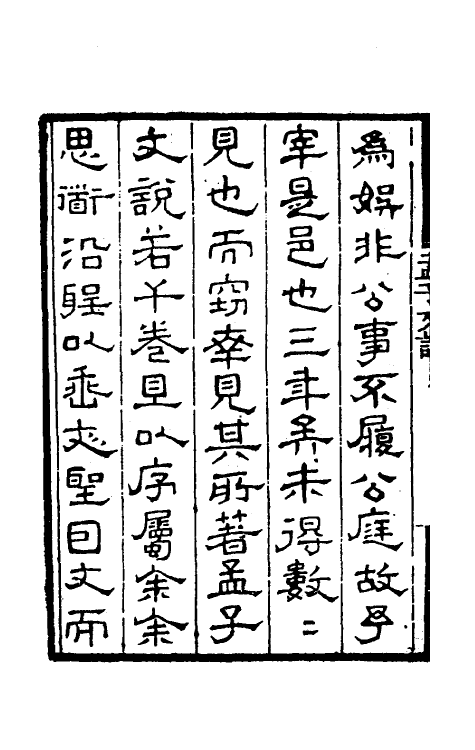 為娛非公事不履公庭故予
宰是邑也三年矣未得數〻
見也而竊幸見其所著孟子
文說若干卷且以序屬余余
思衜沿聖以垂文聖囙文而
孟子文說